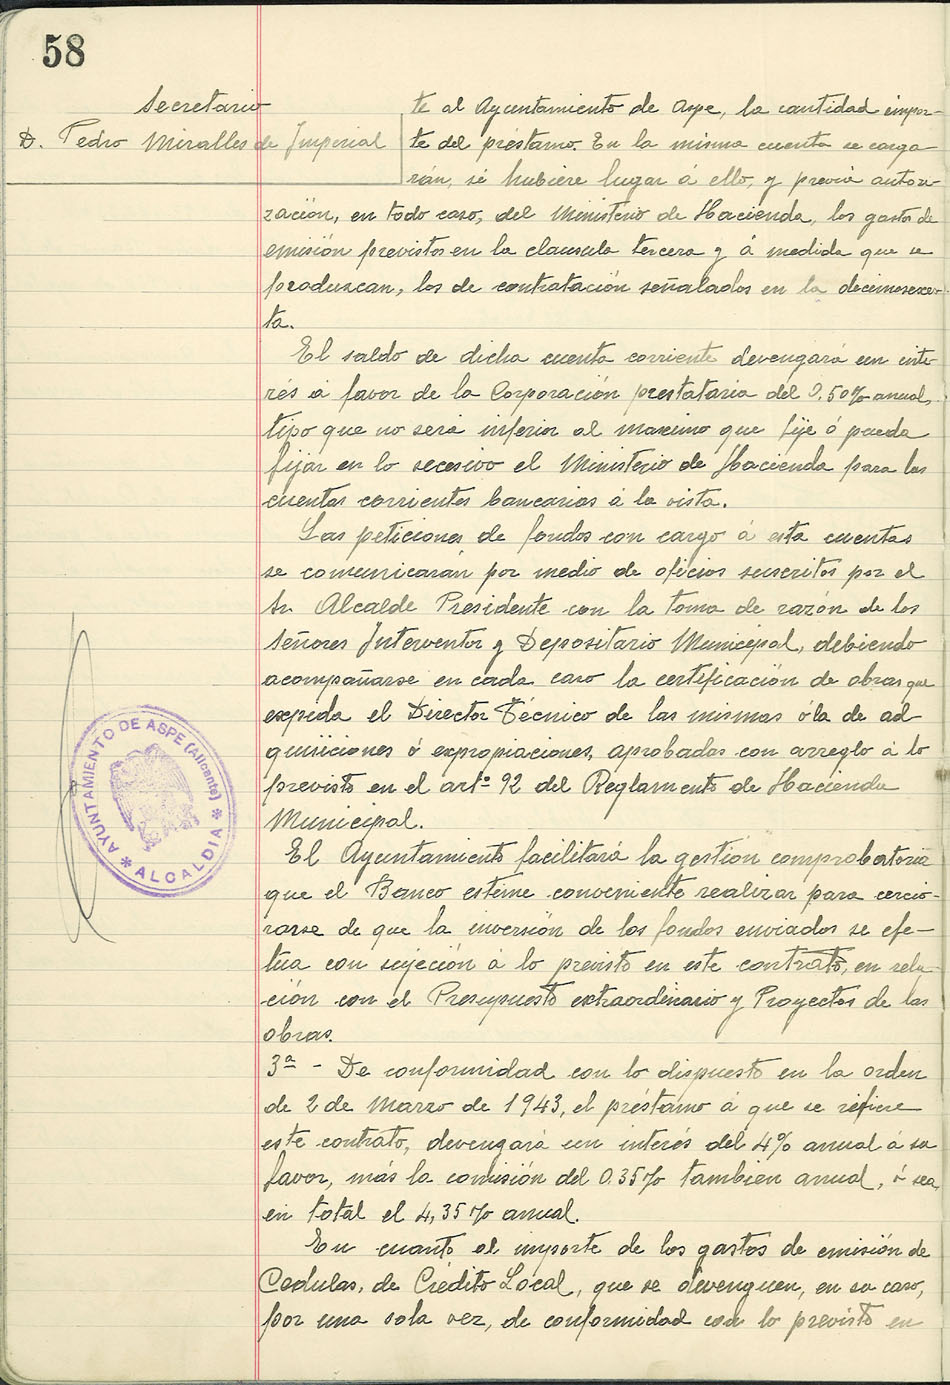 58
Secretario
D. Pedro Miralles de Imperial
te al Ayuntamiento de Aspe, la cantidad impor-
te del préstamo. En la misma cuenta se carga-
rán, si hubiere lugar á ello, y previa autori-
zación, en todo caso, del Ministerio de Hacienda, los gastos de
emisión previstos en la clausula tercera y á medida que se
produzcan, los de contratación señalados en la decimosex-
ta.
El saldo de dicha cuenta corriente devengará un inte-
rés á favor de la Corporación prestataria del 0,50% anual,
tipo que no será inferior al maximo que fije ó pueda
fijar en lo sucesivo el Ministerio de Hacienda para las
cuentas corrientes bancarias á la vista.
Las peticiones de fondos con cargo á esta cuentas
se comunicarán por medio de oficios suscritos por el
Sr. Alcalde Presidente con la toma de razón de los
Señores Interventor y Depositario Municipal, debiendo
acompañarse en cada caso la certificación de obras que
expida el Director Técnico de las mismas ó la de ad-
quisiciones ó expropiaciones, aprobadas con arreglo á lo
previsto en el artº 92 del Reglamento de Hacienda
Municipal.
El Ayuntamiento facilitará la gestión comprobatoria
que el Banco estime conveniente realizar para cercio-
rarse de que la inversión de los fondos enviados se efe-
tua con sujeción á lo previsto en este contrato, en rela-
ción con el Presupuesto extraordinario y Proyectos de las
obras.
3ª - De conformidad con lo dispuesto en la orden
de 2 de Marzo de 1943, el préstamo á que se refiere
este contrato, devengará un interés del 4% anual á su
favor, más la comisión del 0.35% tambien anual, ó sea,
en total el 4,35% anual.
En cuanto al importe de los gastos de emisión de
Cedulas, de Crédito Local, que se devenguen, en su caso,
por una sola vez, de conformidad con lo previsto en
AYUNTAMIENTO DE ASPE (Alicante)
* ALCALDIA *